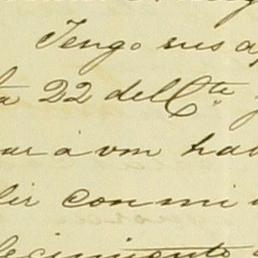 Tengo sus a
ta 22 del Cte
ar á vm hab
lir con mi
lecimiento